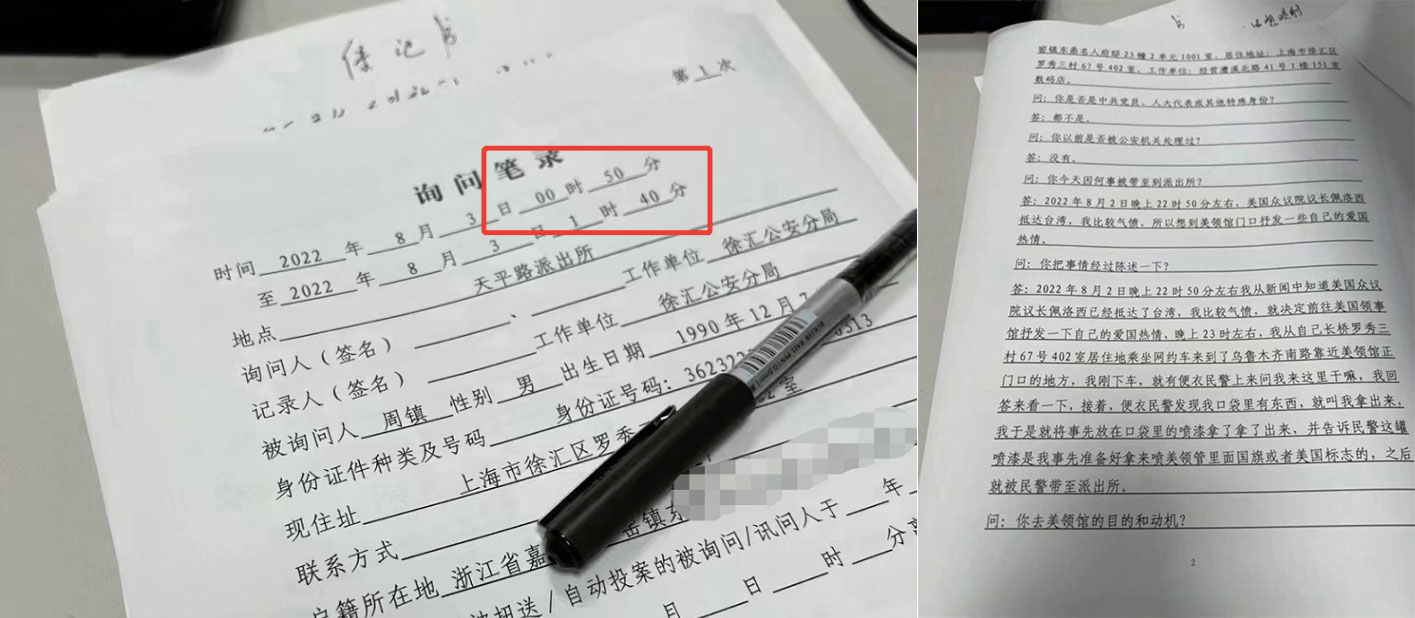 第 1 次
询问笔录
时间 2022 年 8 月 3 日 00 时 50 分
至 2022 年 8 月 3 日 1 时 40 分
地点 天平路派出所
询问人（签名） 、 工作单位 徐汇公安分局
记录人（签名） 工作单位 徐汇公安分局
被询问人 周镇 性别 男 出生日期 1990 年 12 月
身份证件种类及号码 身份证号码：
现住址 上海市徐汇区罗秀 室
联系方式
户籍所在地 浙江省嘉
扭送／自动投案的被询问/讯问人于 年
月 日 时 分
镇东鼎名人府邸 23 幢 2 单元 1001 室，居住地址：上海市徐汇区
罗秀三村 67 号 402 室，工作单位：经营漕溪北路 41 号 1 楼 151 室
数码店。
问：你是否是中共党员、人大代表或其他特殊身份？
答：都不是。
问：你以前是否被公安机关处理过？
答：没有。
问：你今天因何事被带至到派出所？
答：2022 年 8 月 2 日晚上 22 时 50 分左右，美国众议院议长佩洛西
抵达台湾，我比较气愤，所以想到美领馆门口抒发一些自己的爱国
热情。
问：你把事情经过陈述一下？
答：2022 年 8 月 2 日晚上 22 时 50 分左右我从新闻中知道美国众议
院议长佩洛西已经抵达了台湾，我比较气愤，就决定前往美国领事
馆抒发一下自己的爱国热情，晚上 23 时左右，我从自己长桥罗秀三
村 67 号 402 室居住地乘坐网约车来到了乌鲁木齐南路靠近美领馆正
门口的地方，我刚下车，就有便衣民警上来问我来这里干嘛，我回
答来看一下，接着，便衣民警发现我口袋里有东西，就叫我拿出来，
我于是就将事先放在口袋里的喷漆拿了拿了出来，并告诉民警这罐
喷漆是我事先准备好拿来喷美领管里面国旗或者美国标志的，之后
就被民警带至派出所。
问：你去美领馆的目的和动机？
2